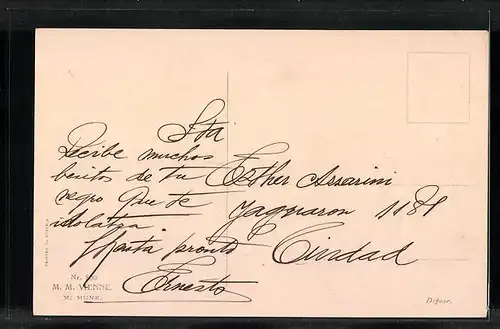 Sta
Esther Assarini
Yaguaron 1181
Ciudad
Recibe muchos
besitos de tu
negro que te
idolatra
Hasta pronto
Ernesto
Nr. 
M. M. VIENNE.
M. MUNK.
Déposé.